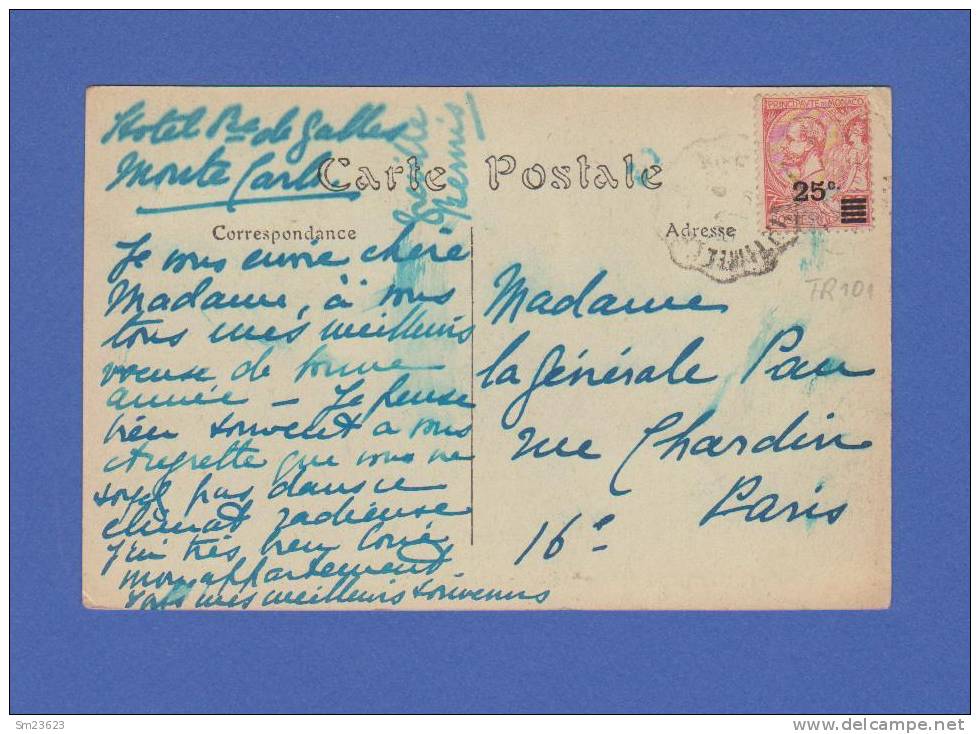 Hotel Pce de Galles
Monte Carlo
Carte Postale
Correspondance
Adresse
PRINCIPAUTÉ DE MONACO
25c.
TR101
Je vous envoie chère
Madame, à vous
tous mes meilleurs
voeux de bonne
année — Je pense
bien souvent a vous
et regrette que vous ne
soyez pas dans ce
climat radieuse
J'ai très bien loué
mon appartement
mes meilleurs souvenirs
Madame
la générale Pau
rue Chardin
Paris
16e
Sm23623
www.delcampe.net